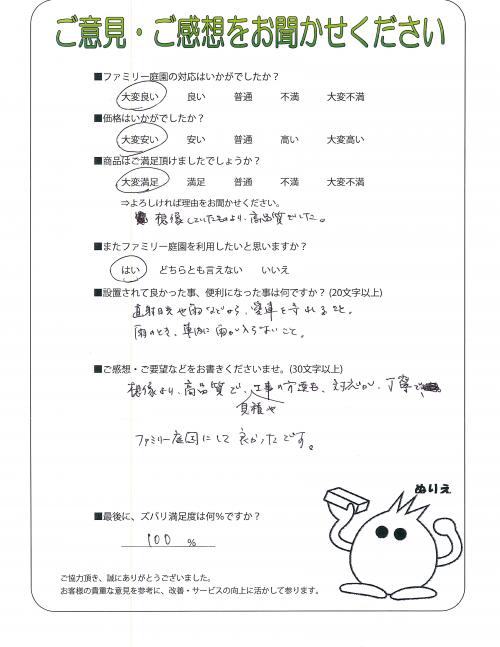 ご意見・ご感想をお聞かせください
■ファミリー庭園の対応はいかがでしたか？
大変良い 良い 普通 不満 大変不満
■価格はいかがでしたか？
大変安い 安い 普通 高い 大変高い
■商品はご満足頂けましたでしょうか？
大変満足 満足 普通 不満 大変不満
⇒よろしければ理由をお聞かせください。
想像していたものより、高品質でした。
■またファミリー庭園を利用したいと思いますか？
はい どちらとも言えない いいえ
■設置されて良かった事、便利になった事は何ですか？(20文字以上)
直射日光や雨などから、愛車を守れること。
雨のとき、車内に雨が入らないこと。
■ご感想・ご要望などをお書きくださいませ。(30文字以上)
想像より、高品質で、工事の方達も、対応が、丁寧で、
見積や
ファミリー庭園にして良かったです。
ぬりえ
■最後に、ズバリ満足度は何％ですか？
100 ％
ご協力頂き、誠にありがとうございました。
お客様の貴重な意見を参考に、改善・サービスの向上に活かして参ります。